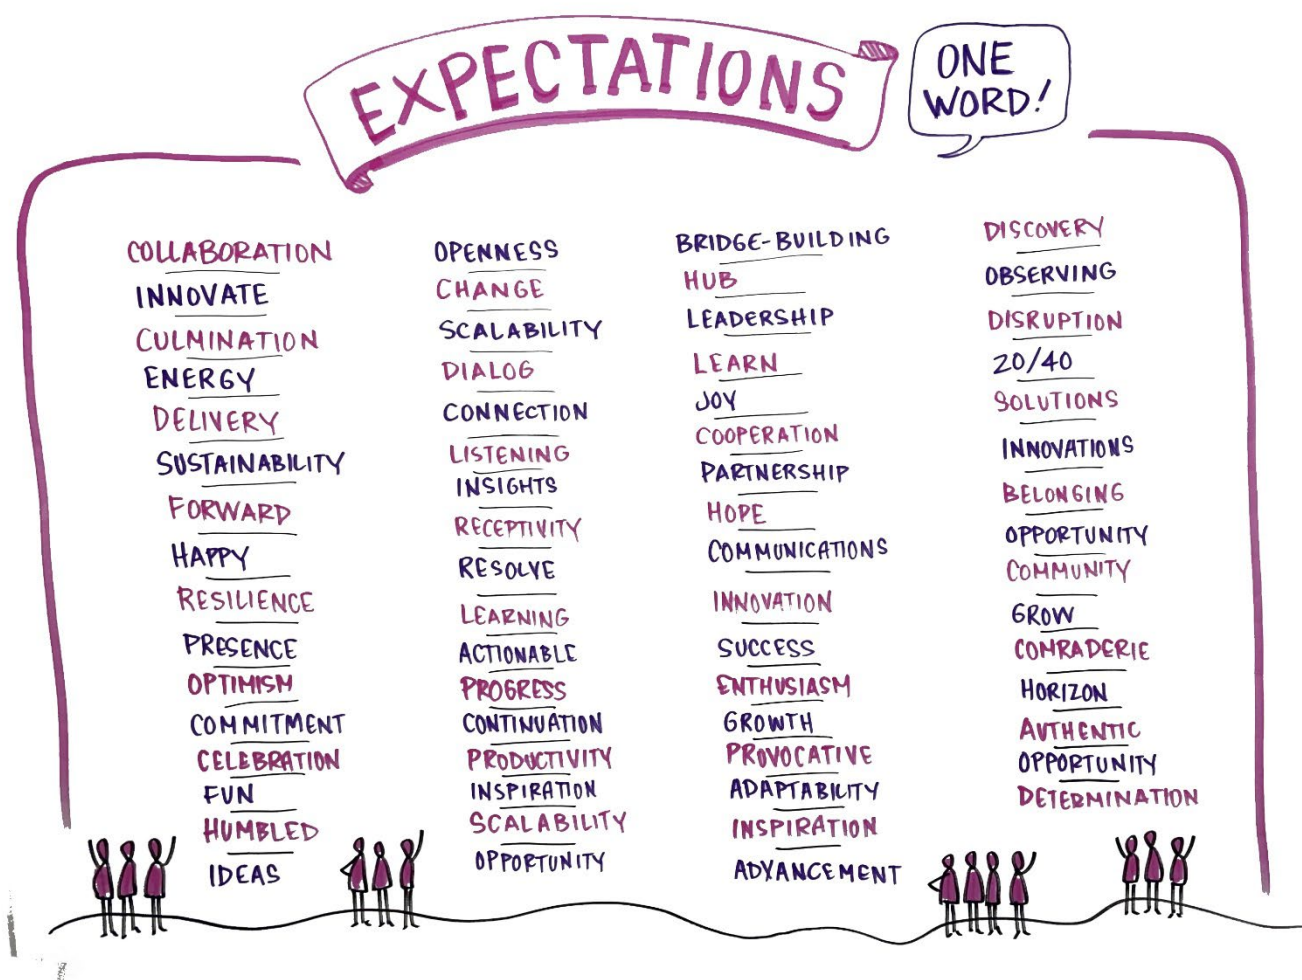 EXPECTATIONS
ONE
WORD!
COLLABORATION
INNOVATE
CULMINATION
ENERGY
DELIVERY
SUSTAINABILITY
FORWARD
HAPPY
RESILIENCE
PRESENCE
OPTIMISM
COMMITMENT
CELEBRATION
FUN
HUMBLED
IDEAS
OPENNESS
CHANGE
SCALABILITY
DIALOG
CONNECTION
LISTENING
INSIGHTS
RECEPTIVITY
RESOLVE
LEARNING
ACTIONABLE
PROGRESS
CONTINUATION
PRODUCTIVITY
INSPIRATION
SCALABILITY
OPPORTUNITY
BRIDGE-BUILDING
HUB
LEADERSHIP
LEARN
JOY
COOPERATION
PARTNERSHIP
HOPE
COMMUNICATIONS
INNOVATION
SUCCESS
ENTHUSIASM
GROWTH
PROVOCATIVE
ADAPTABILITY
INSPIRATION
ADVANCEMENT
DISCOVERY
OBSERVING
DISRUPTION
20/40
SOLUTIONS
INNOVATIONS
BELONGING
OPPORTUNITY
COMMUNITY
GROW
COMRADERIE
HORIZON
AUTHENTIC
OPPORTUNITY
DETERMINATION